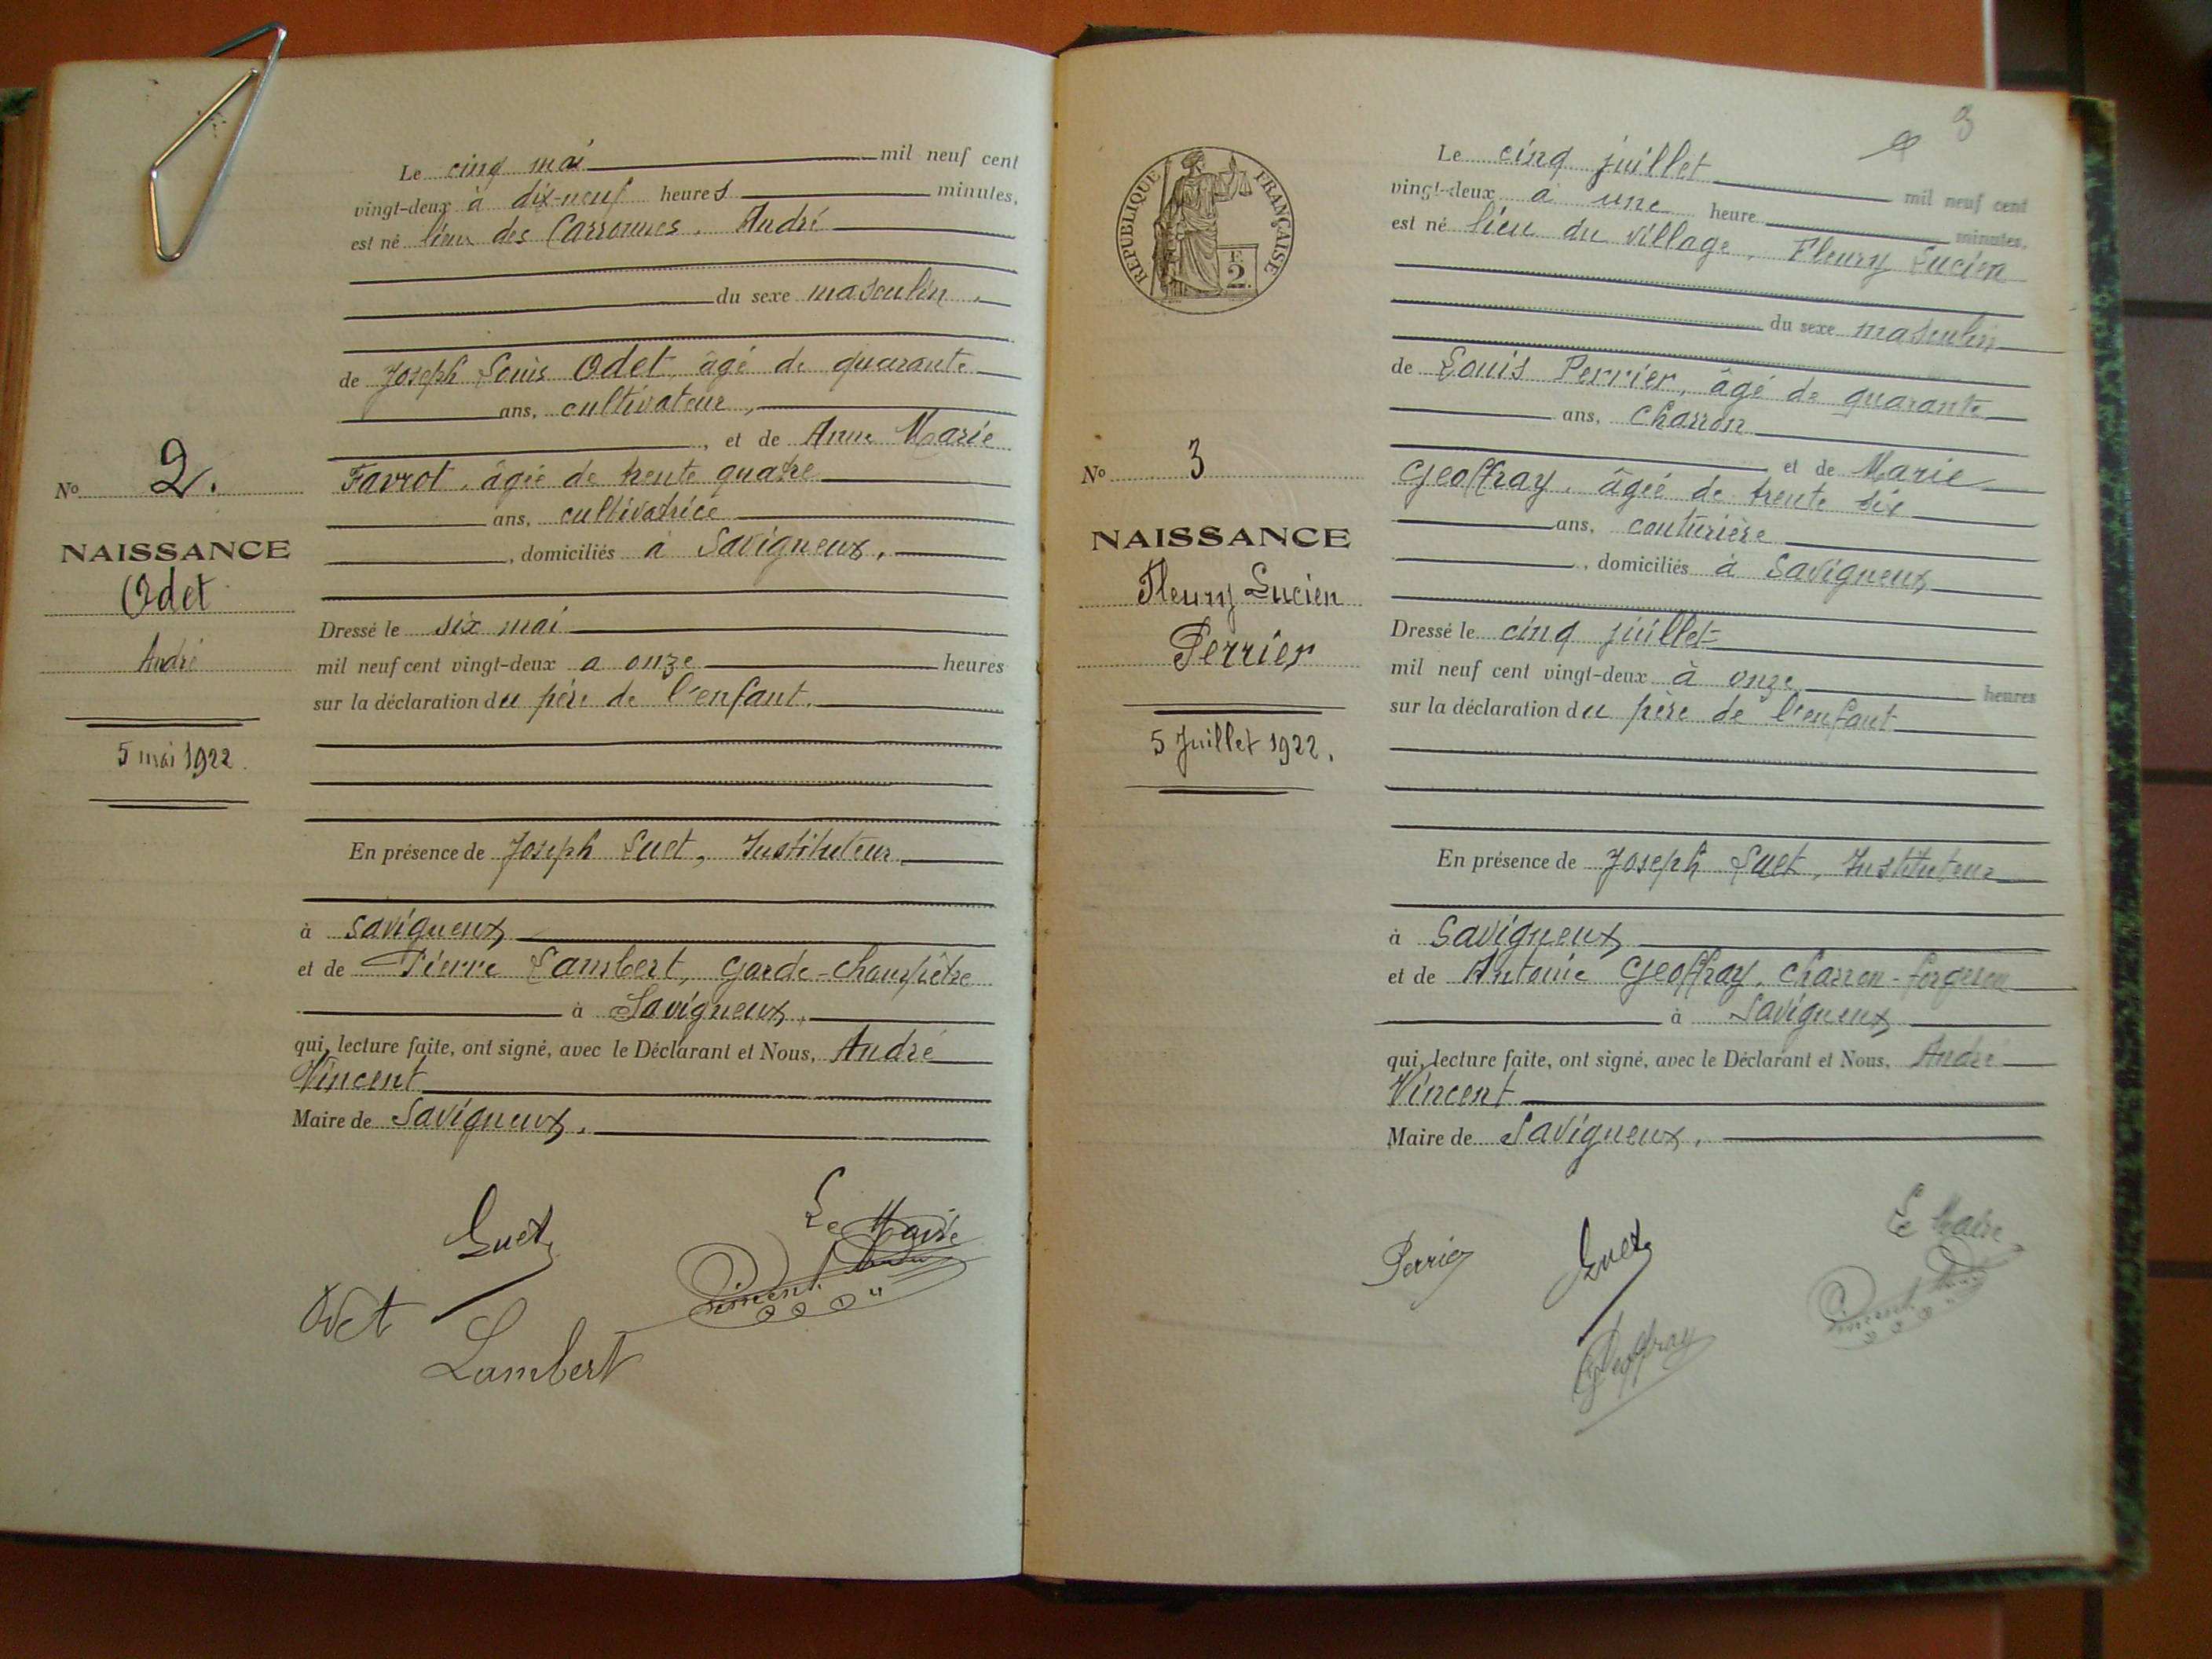 Le cinq mai mil neuf cent
vingt-deux à dix-neuf heures minutes,
est né lieu des André
du sexe masculin,
de Joseph Louis Odet, âgé de quarante
ans, cultivateur,
, et de Anne Marie
Favrot, âgée de trente quatre
ans, cultivatrice
, domiciliés à Savigneux,
Dressé le six mai
mil neuf cent vingt-deux a onze heures
sur la déclaration du père de l'enfant.
En présence de Joseph Suet, Instituteur
à Savigneux
et de Pierre Lambert, garde-champêtre
à Savigneux,
qui, lecture faite, ont signé, avec le Déclarant et Nous, André
Vincent
Maire de Savigneux.
No 2.
NAISSANCE
Odet
André
5 mai 1922.
Suet
Le Maire
Odet
Vincent
Lambert
3
Le cinq juillet mil neuf cent
vingt-deux à une heure minutes,
est né lieu du village, Fleury Lucien
du sexe masculin
de Louis Perrier, âgé de quarante
ans, charron
et de Marie
Geoffray, âgée de trente six
ans, couturière
, domiciliés à Savigneux
Dressé le cinq juillet
mil neuf cent vingt-deux à onze heures
sur la déclaration du père de l'enfant
En présence de Joseph Suet, Instituteur
à Savigneux
et de Antoine Geoffray, charron-forgeron
à Savigneux
qui, lecture faite, ont signé, avec le Déclarant et Nous, André
Vincent
Maire de Savigneux.
REPUBLIQUE FRANÇAISE
F.
2.
No 3
NAISSANCE
Fleury Lucien
Perrier
5 Juillet 1922.
Perrier
Suet
Le Maire
Vincent
Geoffray